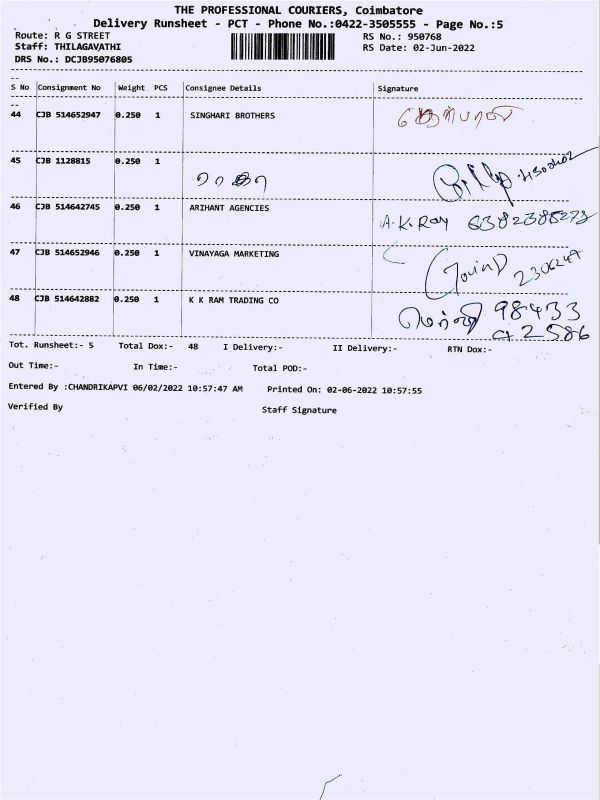 THE PROFESSIONAL COURIERS, Coimbatore
Delivery Runsheet - PCT - Phone No.:0422-3505555 - Page No.:5
Route: R G STREET RS No.: 950768
Staff: THILAGAVATHI RS Date: 02-Jun-2022
DRS No.: DCJB95076805
S No Consignment No Weight PCS Consignee Details Signature
44 CJB 514652947 0.250 1 SINGHARI BROTHERS
45 CJB 1128815 0.250 1
46 CJB 514642745 0.250 1 ARIHANT AGENCIES A.K. Ray 6382385273
47 CJB 514652946 0.250 1 VINAYAGA MARKETING Govind 2306247
48 CJB 514642882 0.250 1 K K RAM TRADING CO 98433
42586
Tot. Runsheet:- 5 Total Dox:- 48 I Delivery:- II Delivery:- RTN Dox:-
Out Time:- In Time:- Total POD:-
Entered By :CHANDRIKAPVI 06/02/2022 10:57:47 AM Printed On: 02-06-2022 10:57:55
Verified By Staff Signature